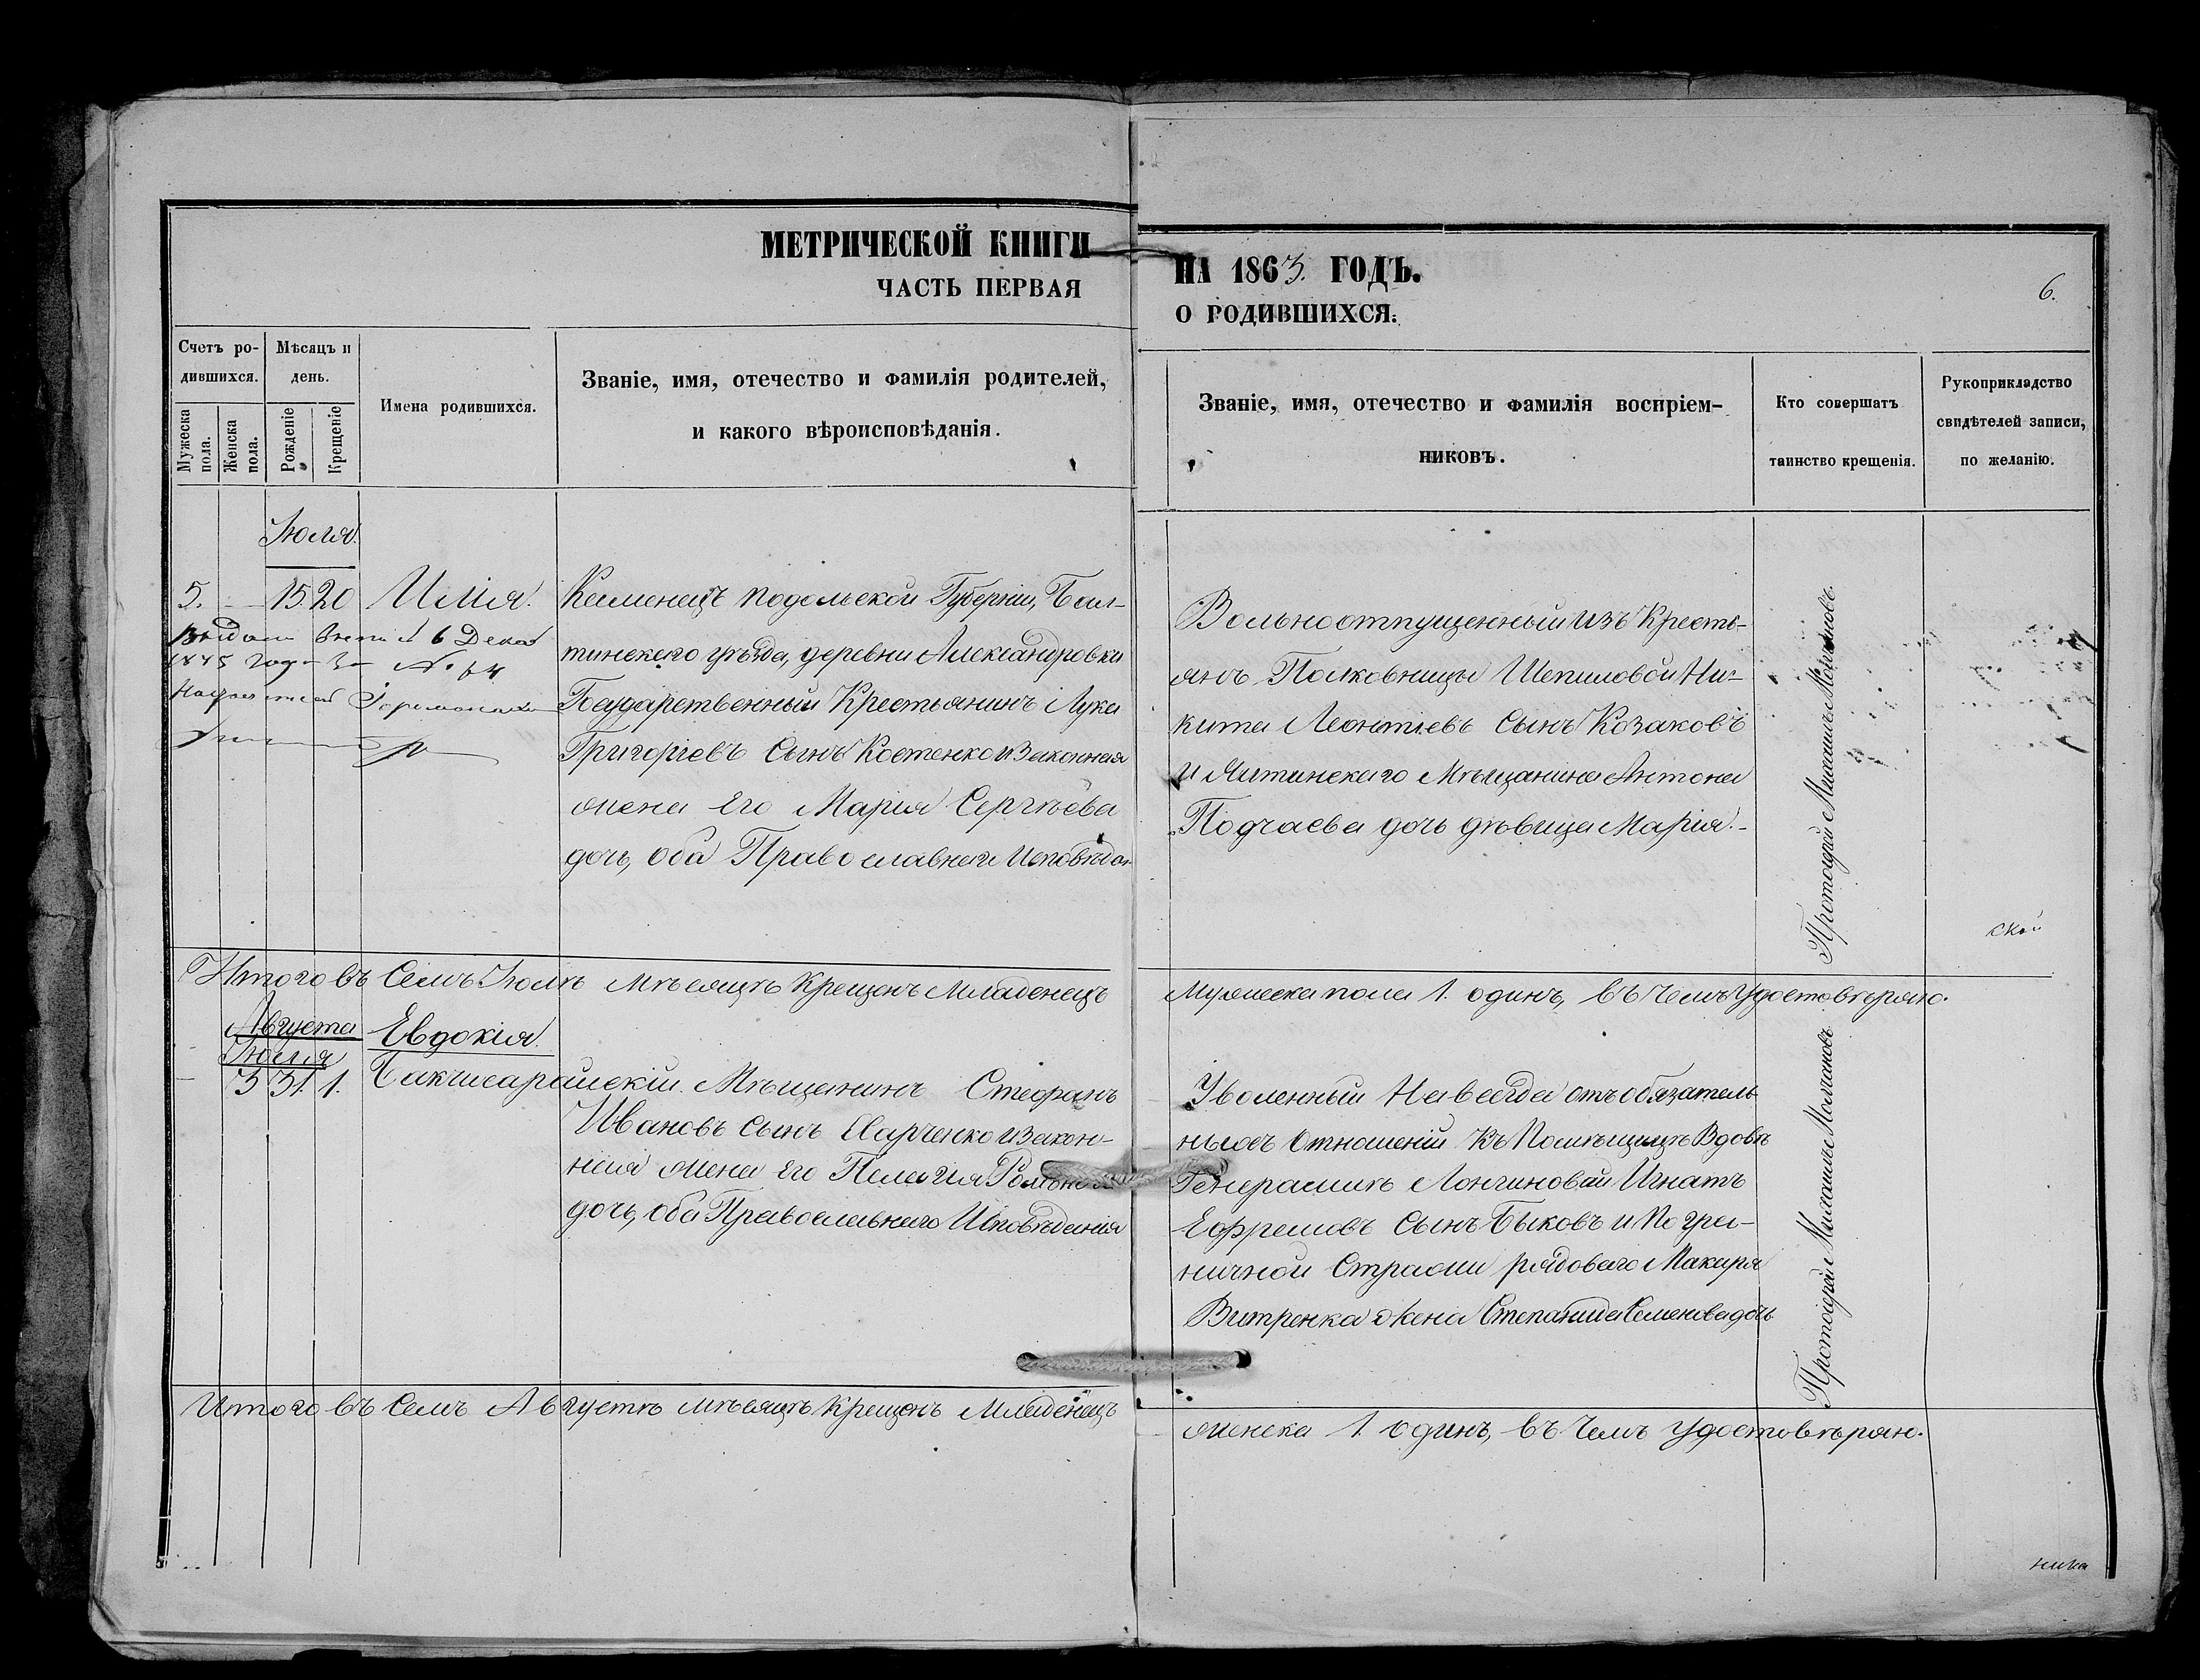 МЕТРИЧЕСКОЙ КНИГИ
ЧАСТЬ ПЕРВАЯ
Счетъ ро-
дившихся.
Мужеска
пола.
Женска
пола.
Мѣсяцъ и
день.
Рожденіе
Крещеніе
Имена родившихся.
Званіе, имя, отечество и фамилія родителей,
и какого вѣроисповѣданія.
Іюля.
5. — 15. 20 Илія.
6
№ 64
Каменецъ Подольской Губерніи, Бал-
тинскаго уѣзда, деревни Александровки
Государственный Крестьянинъ Лука
Григоріевъ Сынъ Костенко и Законная
жена Его Марія Сергѣева
дочь, оба Православнаго Исповѣдан.
Итого въ Семъ Іюлѣ Мѣсяцѣ Крещенъ Младенецъ
Августа
Іюля
— 3 31. 1.
Евдокія.
Бакчисарайскій Мѣщанинъ Стефанъ
Ивановъ Сынъ Харченко и Закон-
ная жена Его Пелагія
дочь, оба Православнаго Исповѣданія
Итого въ Семъ Августѣ мѣсяцѣ Крещенъ Младенецъ
НА 1863. ГОДЪ.
О РОДИВШИХСЯ.
6.
Званіе, имя, отечество и фамилія воспріем-
никовъ.
Кто совершатъ
таинство крещенія.
Рукоприкладство
свидѣтелей записи,
по желанію.
Вольноотпущенный изъ Кресть-
янъ Полковницы Шепиловой Ни-
кита Леонтіевъ Сынъ Козаковъ
и Ялтинскаго Мѣщанина Антона
Подчаева дочь дѣвица Марія.-
Протоіерей Михаилъ Молчановъ
ской
Мужеска пола 1. одинъ, въ чемъ удостовѣряю.
Уволенный Навсегда отъ обязатель
ныхъ Отношеній Къ Помѣщицѣ Вдовѣ
Генеральшѣ Лонгиновой Игнатъ
Ефремовъ Сынъ Быковъ и Погра-
ничной Стражи рядоваго Макара
Витренка жена Степанида Семенова дочь
Протоіерей Михаилъ Молчановъ
женска 1. одинъ, въ Чемъ удостовѣряю.